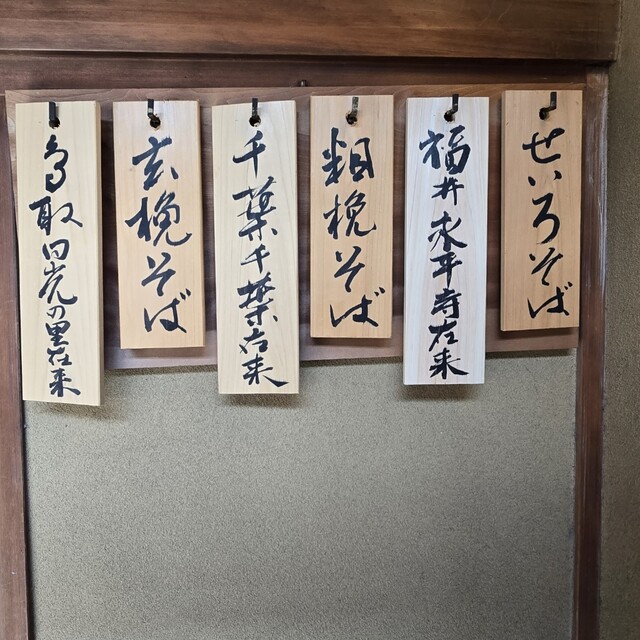 せいろそば
福井永平寺在来
粗挽そば
千葉千葉在来
玄挽そば
鳥取日光の里在来